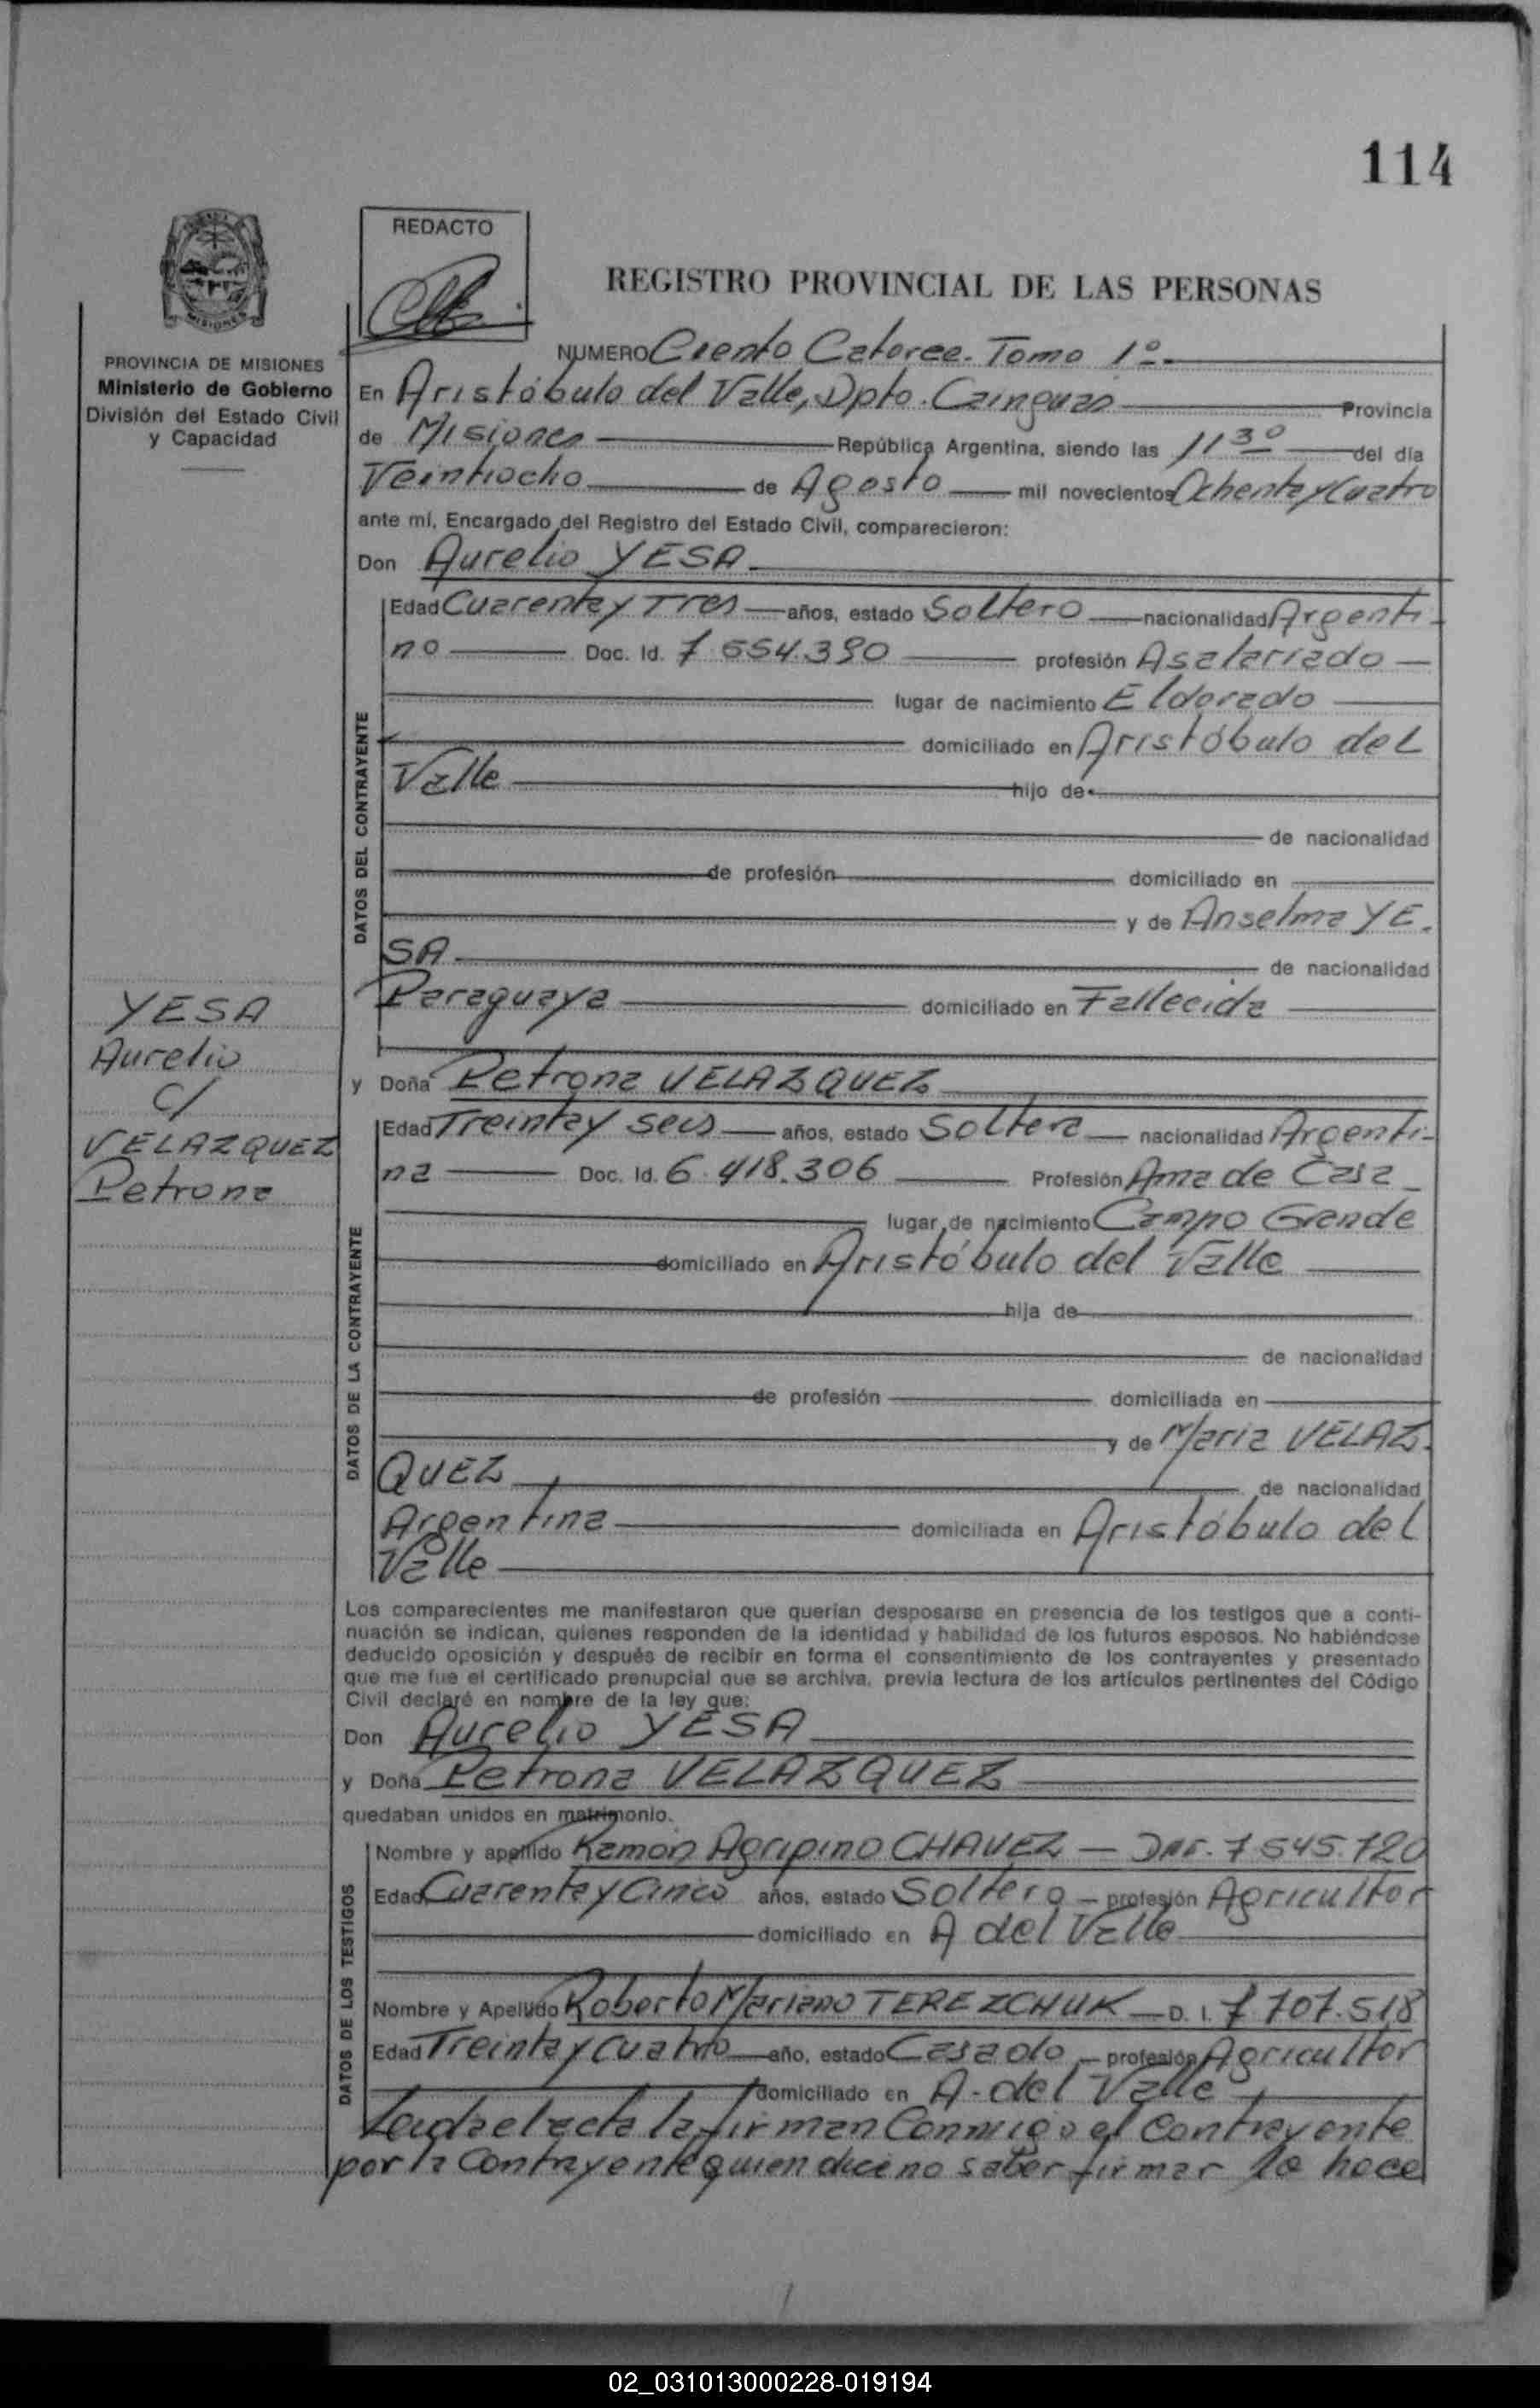 114
REDACTO
REGISTRO PROVINCIAL DE LAS PERSONAS
MISIONES
PROVINCIA DE MISIONES
Ministerio de Gobierno
División del Estado Civil
y Capacidad
NUMERO Ciento Catorce. Tomo 1º
En Aristóbulo del Valle, Dpto. Cainguas Provincia
de Misiones República Argentina, siendo las 11 30 del día
Veintiocho de Agosto mil novecientos Ochenta y Cuatro
ante mí, Encargado del Registro del Estado Civil, comparecieron:
Don Aurelio YESA
DATOS DEL CONTRAYENTE
Edad Cuarenta y Tres años, estado Soltero nacionalidad Argenti-
no Doc. Id. 7.554.390 profesión Asalariado
lugar de nacimiento Eldorado
domiciliado en Aristóbulo del
Valle hijo de
de nacionalidad
de profesión domiciliado en
y de Anselma YE-
SA de nacionalidad
Paraguaya domiciliado en Fallecida
YESA
Aurelio
C/
VELAZQUEZ
Petrona
y Doña Petrona VELAZQUEZ
DATOS DE LA CONTRAYENTE
Edad Treinta y seis años, estado Soltera nacionalidad Argenti-
na Doc. Id. 6.418.306 Profesión Ama de Casa
lugar de nacimiento Campo Grande
domiciliado en Aristóbulo del Valle
hija de
de nacionalidad
de profesión domiciliada en
y de Maria VELAZ-
QUEZ de nacionalidad
Argentina domiciliada en Aristóbulo del
Valle
Los comparecientes me manifestaron que querían desposarse en presencia de los testigos que a conti-
nuación se indican, quienes responden de la identidad y habilidad de los futuros esposos. No habiéndose
deducido oposición y después de recibir en forma el consentimiento de los contrayentes y presentado
que me fue el certificado prenupcial que se archiva, previa lectura de los artículos pertinentes del Código
Civil declaré en nombre de la ley que:
Don Aurelio YESA
y Doña Petrona VELAZQUEZ
quedaban unidos en matrimonio.
DATOS DE LOS TESTIGOS
Nombre y apellido Ramon Agripino CHAVEZ - 7.545.720
Edad Cuarenta y Cinco años, estado Soltero profesión Agricultor
domiciliado en A del Valle
Nombre y Apellido Roberto Mariano TEREZCHUK D. I. 7.707.518
Edad Treinta y cuatro año, estado Casado profesión Agricultor
domiciliado en A. del Valle
Leida el acta la firman Conmigo el contrayente
por la Contrayente quien dice no saber firmar lo hace
02_031013000228-019194